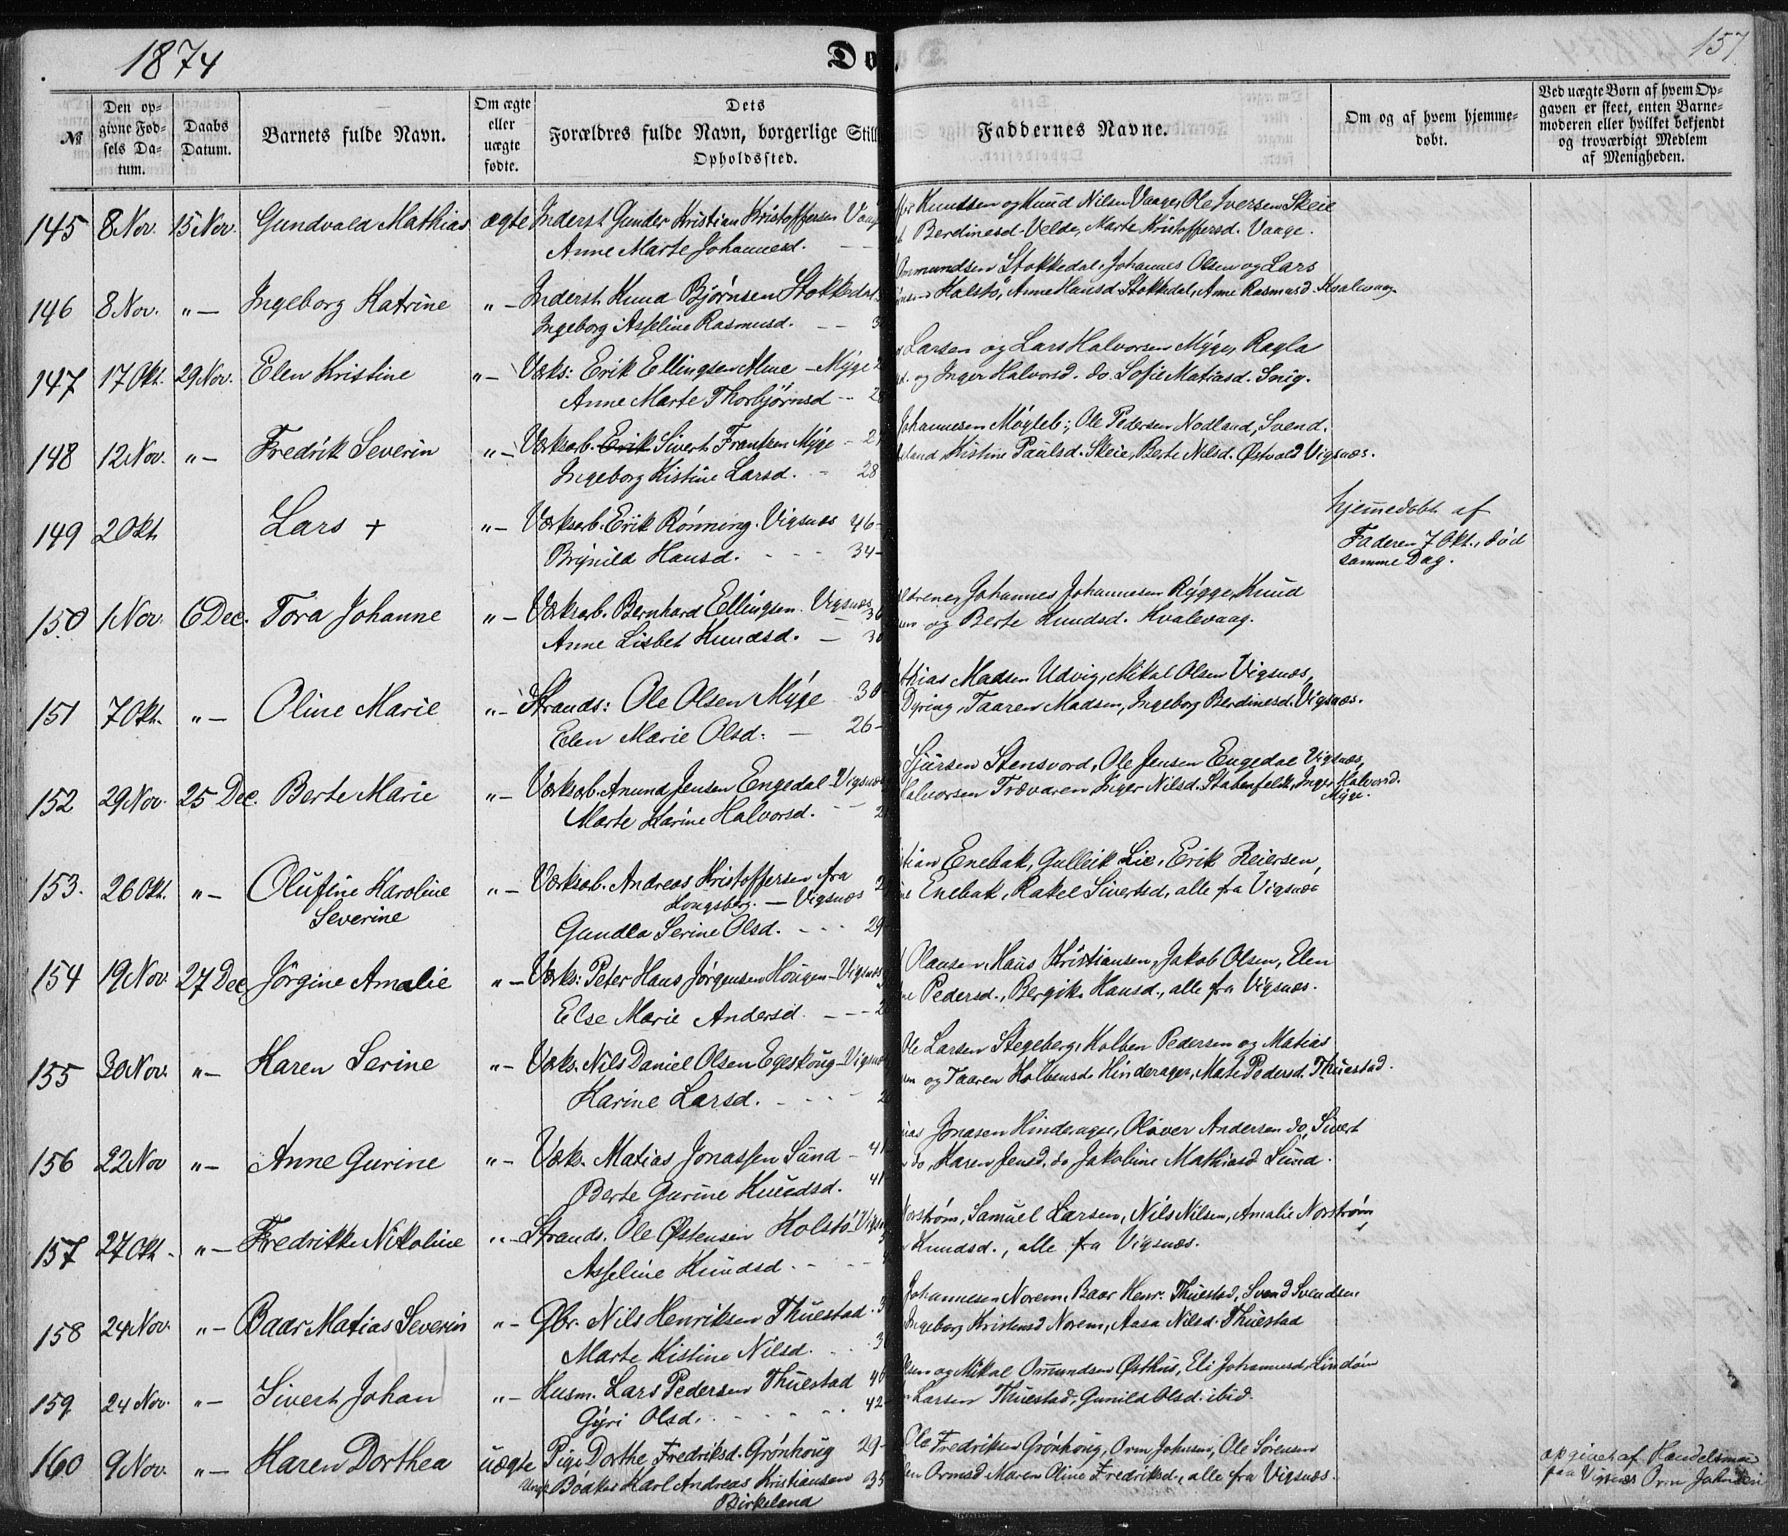 1874
157
№
Den op-
givne Fød-
sels Da-
tum.
Daabs
Datum.
Barnets fulde Navn.
Om ægte
eller
uægte
fødte.
Dets
Forældres fulde Navn, borgerlige
Opholdssted.
Faddernes Navne.
Om og af hvem hjemme-
døbt.
Ved uægte Børn af hvem Op-
gaven er skeet, enten Barne-
moderen eller hvilket bekjendt
og troværdigt Medlem
af Menigheden.
145 8 Nov. 15 Nov. Gundvald Mathias ægte Inderst. Gunder Kristian Kristoffersen
Anne Marte Johannesd.
Knudsen og Knud Nilsen Vaage, Ole Iversen Skeie
Berdinesd Velde, Marte Kristoffersd. Vaage.
146 8 Nov. „ — Ingeborg Katrine „ — Inderst. Knud Bjørnsen Stokkedal
Ingeborg Asseline Rasmusd.
Stokkedal, Johannes Olsen og Lars
Holstø, Anne Hansd Stokkedal, Anne Rasmusd. Kvalevaag
147 17 Okt. 29 Nov. Elen Kristine „ — Værks: Erik Ellingsen — Myge
Anne Marte Thorbjørnsd
Larsen og Lars Halvorsen Myge, Ragla
og Inger Halvorsd. do. Sofie Matiasd. Snig.
148 12 Nov. „ — Fredrik Severin „ — Værksarb. Erik Sivert Frantsen Myge
Ingeborg Kistine Larsd. 28
Johannesen Møgleb.; Ole Pedersen Nodland, Svend
Kistine Paulsd. Skeie, Berte Nilsd. Østvold Vigsnæs.
149 2 Okt. Lars + „ — Værksarb. Erik Rönning. Vigsnæs 46 -
Brynild Hansd. 34 -
hjemmedøbt af
Faderen 7 Okt., død
samme Dag.
150 1 Nov. 6 Dec. Tora Johanne „ — Værksarb. Bernhard Ellingsen. Vigsnæs
Anne Lisbet Knudsd.
Johannes Johannesen Rygge, Knud
og Berte Knudsd. Kvalevaag.
151 7 Okt. „ — Oline Marie „ — Strands: Ole Olsen Myge 30
Elen Marie Olsd: 26 -
Madsen Udvig, Mikal Olsen Vigsnæs,
Dyring, Taaren Madsen, Ingeborg Berdinesd. Vigsnæs.
152 29 Nov. 25 Dec. Berte Marie „ — Værksarb. Amund Jensen Engedal — Vigsnæs
Marte Karine Halvorsd.
Sjursen Stensvord, Ole Jensen Engedal Vigsnæs,
Halvorsen Trævaren Inger Nilsd. Inger Halvorsd.
Myge.
153. 26 Okt. „ — Olufine Karoline
Severine
„ — Værksarb. Andreas Kristoffersen fra
Kongsberg. — Vigsnæs
Gundla Serine Olsd. 29
Enebak, Gulleik Lie, Erik Reiersen,
Enebak, Rakel Sivertsd, alle fra Vigsnæs
154 19 Nov. 27 Dec Jörgine Amalie „ — Værks: Peter Hans Jørgensen Hougen — Vigsnæs
Else Marie Andersd.
Olausen, Hans Kristiansen, Jakob Olsen, Elen
Pedersd., Hansd., alle fra Vigsnæs.
155 30 Nov. „ — Karen Serine „ — Værks. Nils Daniel Olsen Egeskoug — Vigsnæs
Karine Larsd.
Ole Larsen Stegeberg, Kolben Pedersen og Matias
og Taaren Kolbensd. Hinderager, Pedersd. Thuestad.
156 22 Nov „ — Anne Gurine „ — Værks. Matias Jonassen Sund - 41
Berte Gurine Knudsd. 41
Jonasen Hinderager, Oliver Andersen do, Sivert
do, Karen Jensd. do Jakobine Mathiasd Sund.
157 27 Okt. „ — Fredrikke Nikoline „ — Strands. Ole Østensen Holstø
Asseline Knudsd
Norstrøm, Samuel Larsen, Nils Nilsen, Amalie Norstrøm
Knudsd., alle fra Vigsnæs.
158 24 Nov. „ — Baar Matias Severin „ — Gbr. Nils Henriksen Thuestad
Marte Kistine Nilsd.
Johannesen Norem, Baar Henr. Thuestad, Svend Svendsen
Ingeborg Kristensd Norem, Aasa Nilsd. Thuestad
159 24 Nov. „ — Sivert Johan „ — Husm. Lars Pedersen Thuestad 40
Gyri Olsd. 42
og Mikal Omundsen Østhus, Eli Johannesd. Lindøen
Larsen Thuestad, Gunild Olsd. ibid.
160 9 Nov. „ — Karen Dorthea uægte Pige Dorthe Fredriksd. Grönhoug 29 -
Ungk. Bødker Karl Andreas Kristiansen 35
Birkeland
Ole Fredriksen Grønhoug, Orm Johnsen, Ole Sørensen
Ormsd Maren Oline Fredriksd, alle fra Vigsnæs.
opgivet af Handelsmand
paa Vigsnæs Orm Johnsen